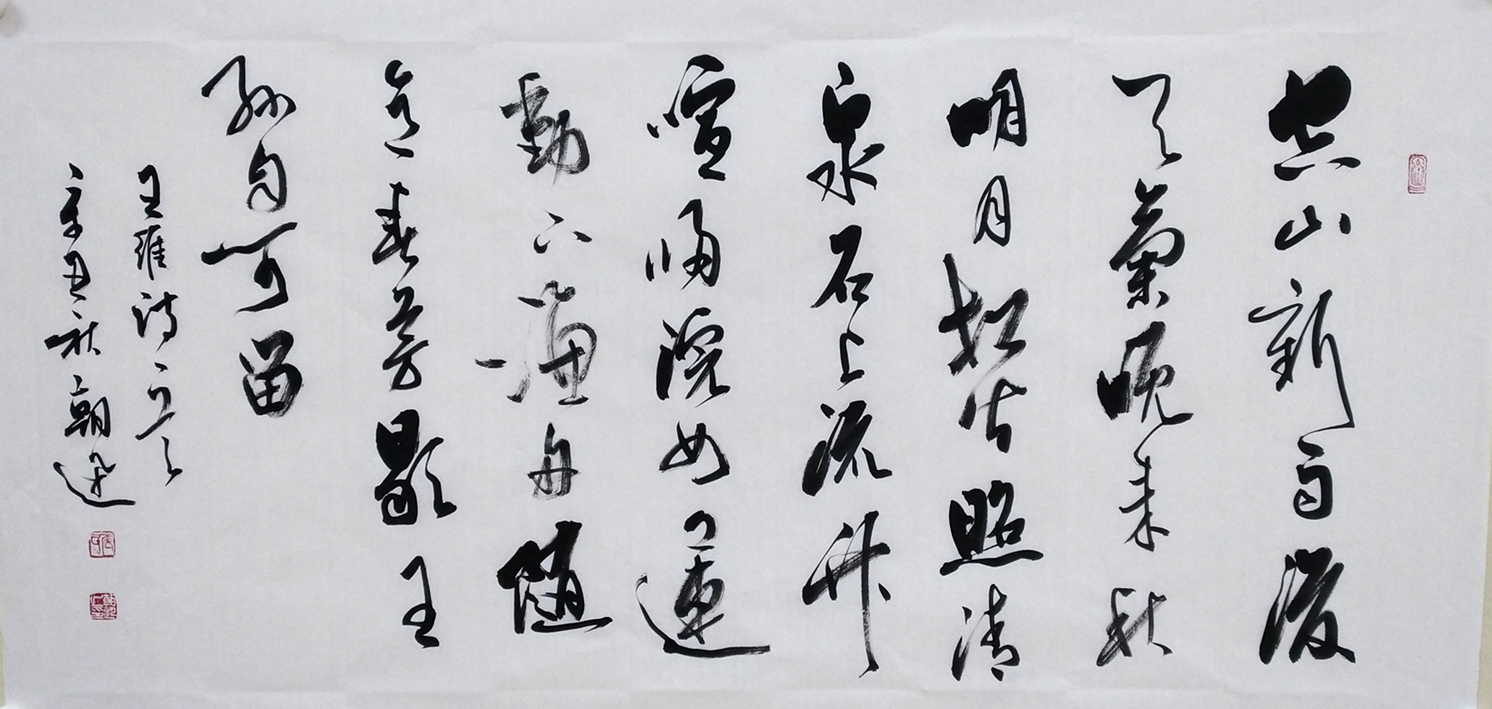 空山新雨後
天氣晚来秋
明月松间照清
泉石上流竹
喧歸浣女蓮
動下漁舟隨
意春芳歇王
孫自可留
王維诗一首
辛丑秋朝迅